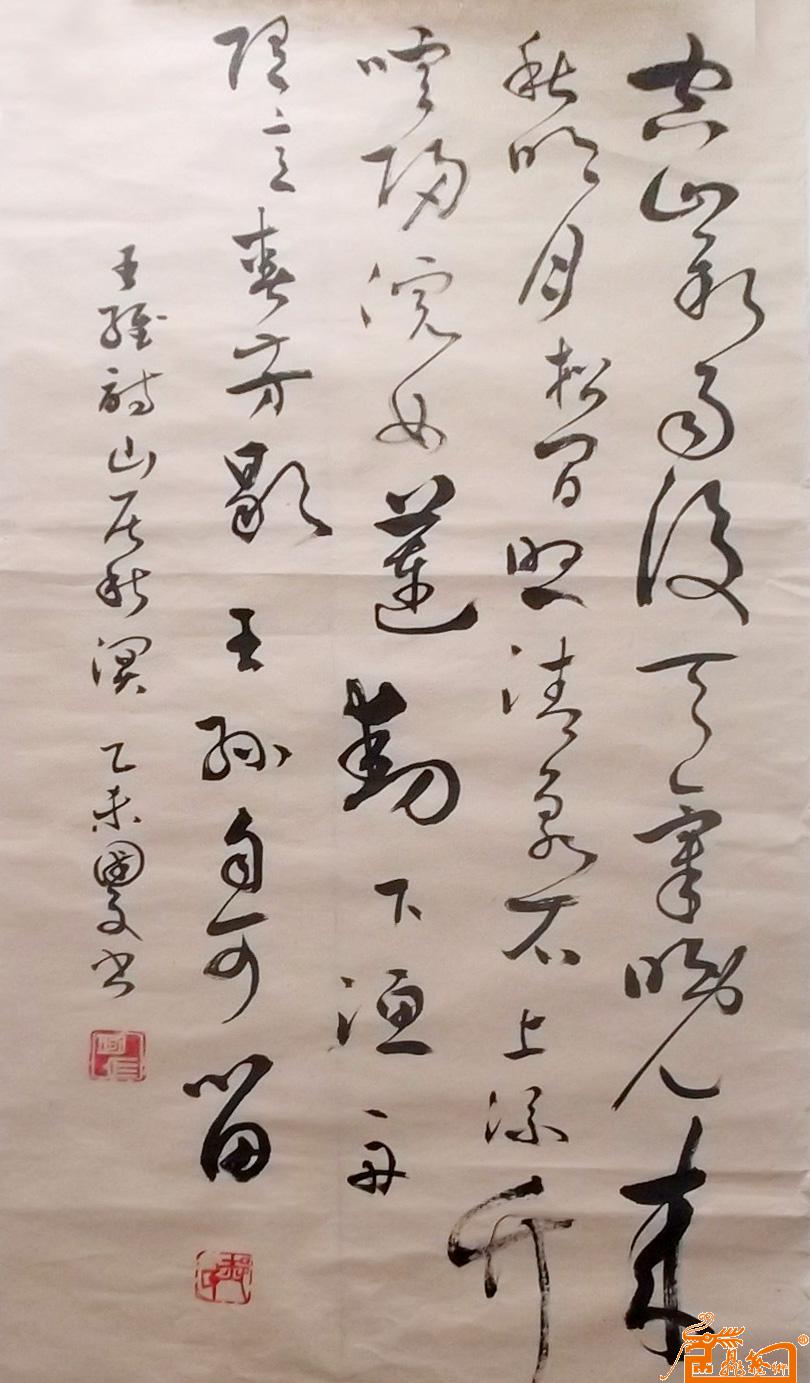 空山新雨後天氣晚来
秋明月松间照清泉石上流竹
喧归浣女蓮動下漁舟
随意春芳歇王孫自可留
王維詩山居秋溟 乙未書